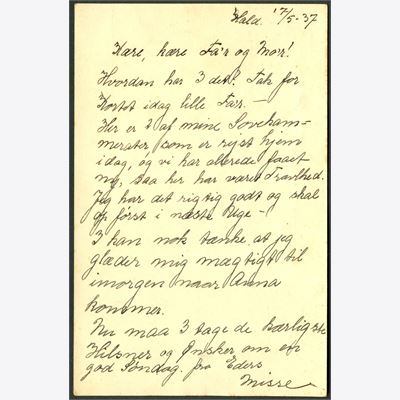 Hald. 17/5-37
Kære, kære Fa'r og Mo'r!
Hvordan har I det? Tak for
Kortet idag lille Far. —
Her er 2 af mine Sovekam-
merater, som er rejst hjem
idag, og vi har allerede faaet
ny, saa her har været Travlhed.
Jeg har det rigtig godt og skal
op först i næste Uge –
I kan nok tænke, at jeg
glæder mig mægtigt til
imorgen naar Anna
kommer.
Nu maa I tage de kærligste
Hilsner og Ønsker om en
god Søndag. fra Eders
Misse